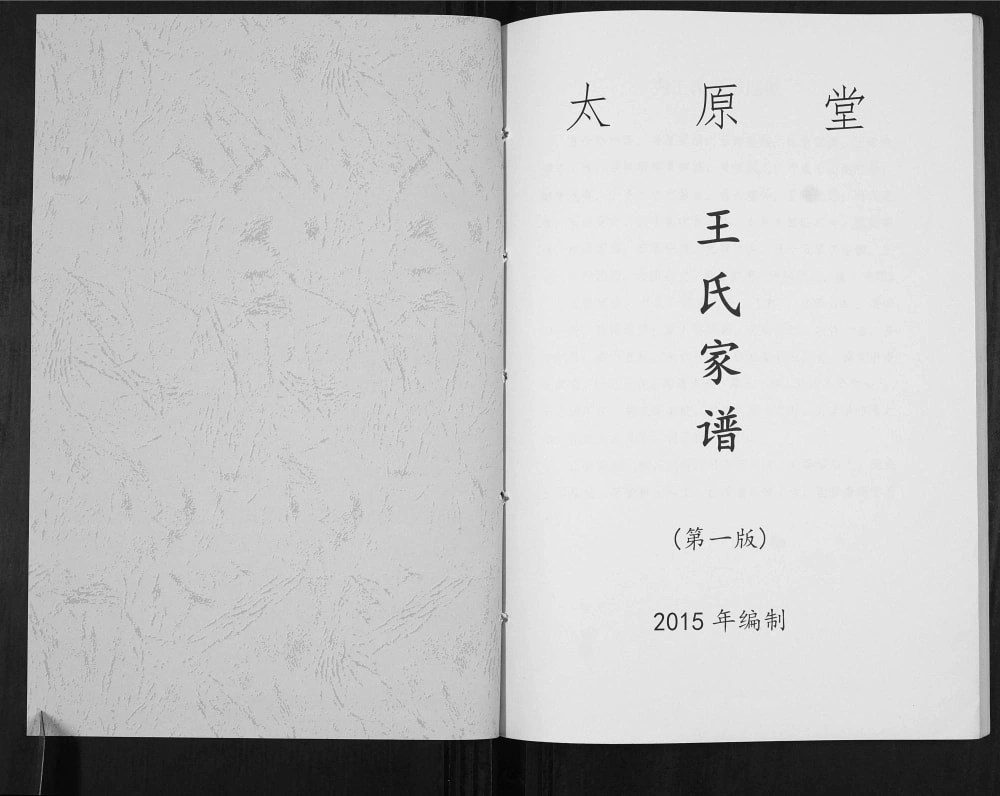 太原堂
王氏家谱
(第一版)
2015 年编制